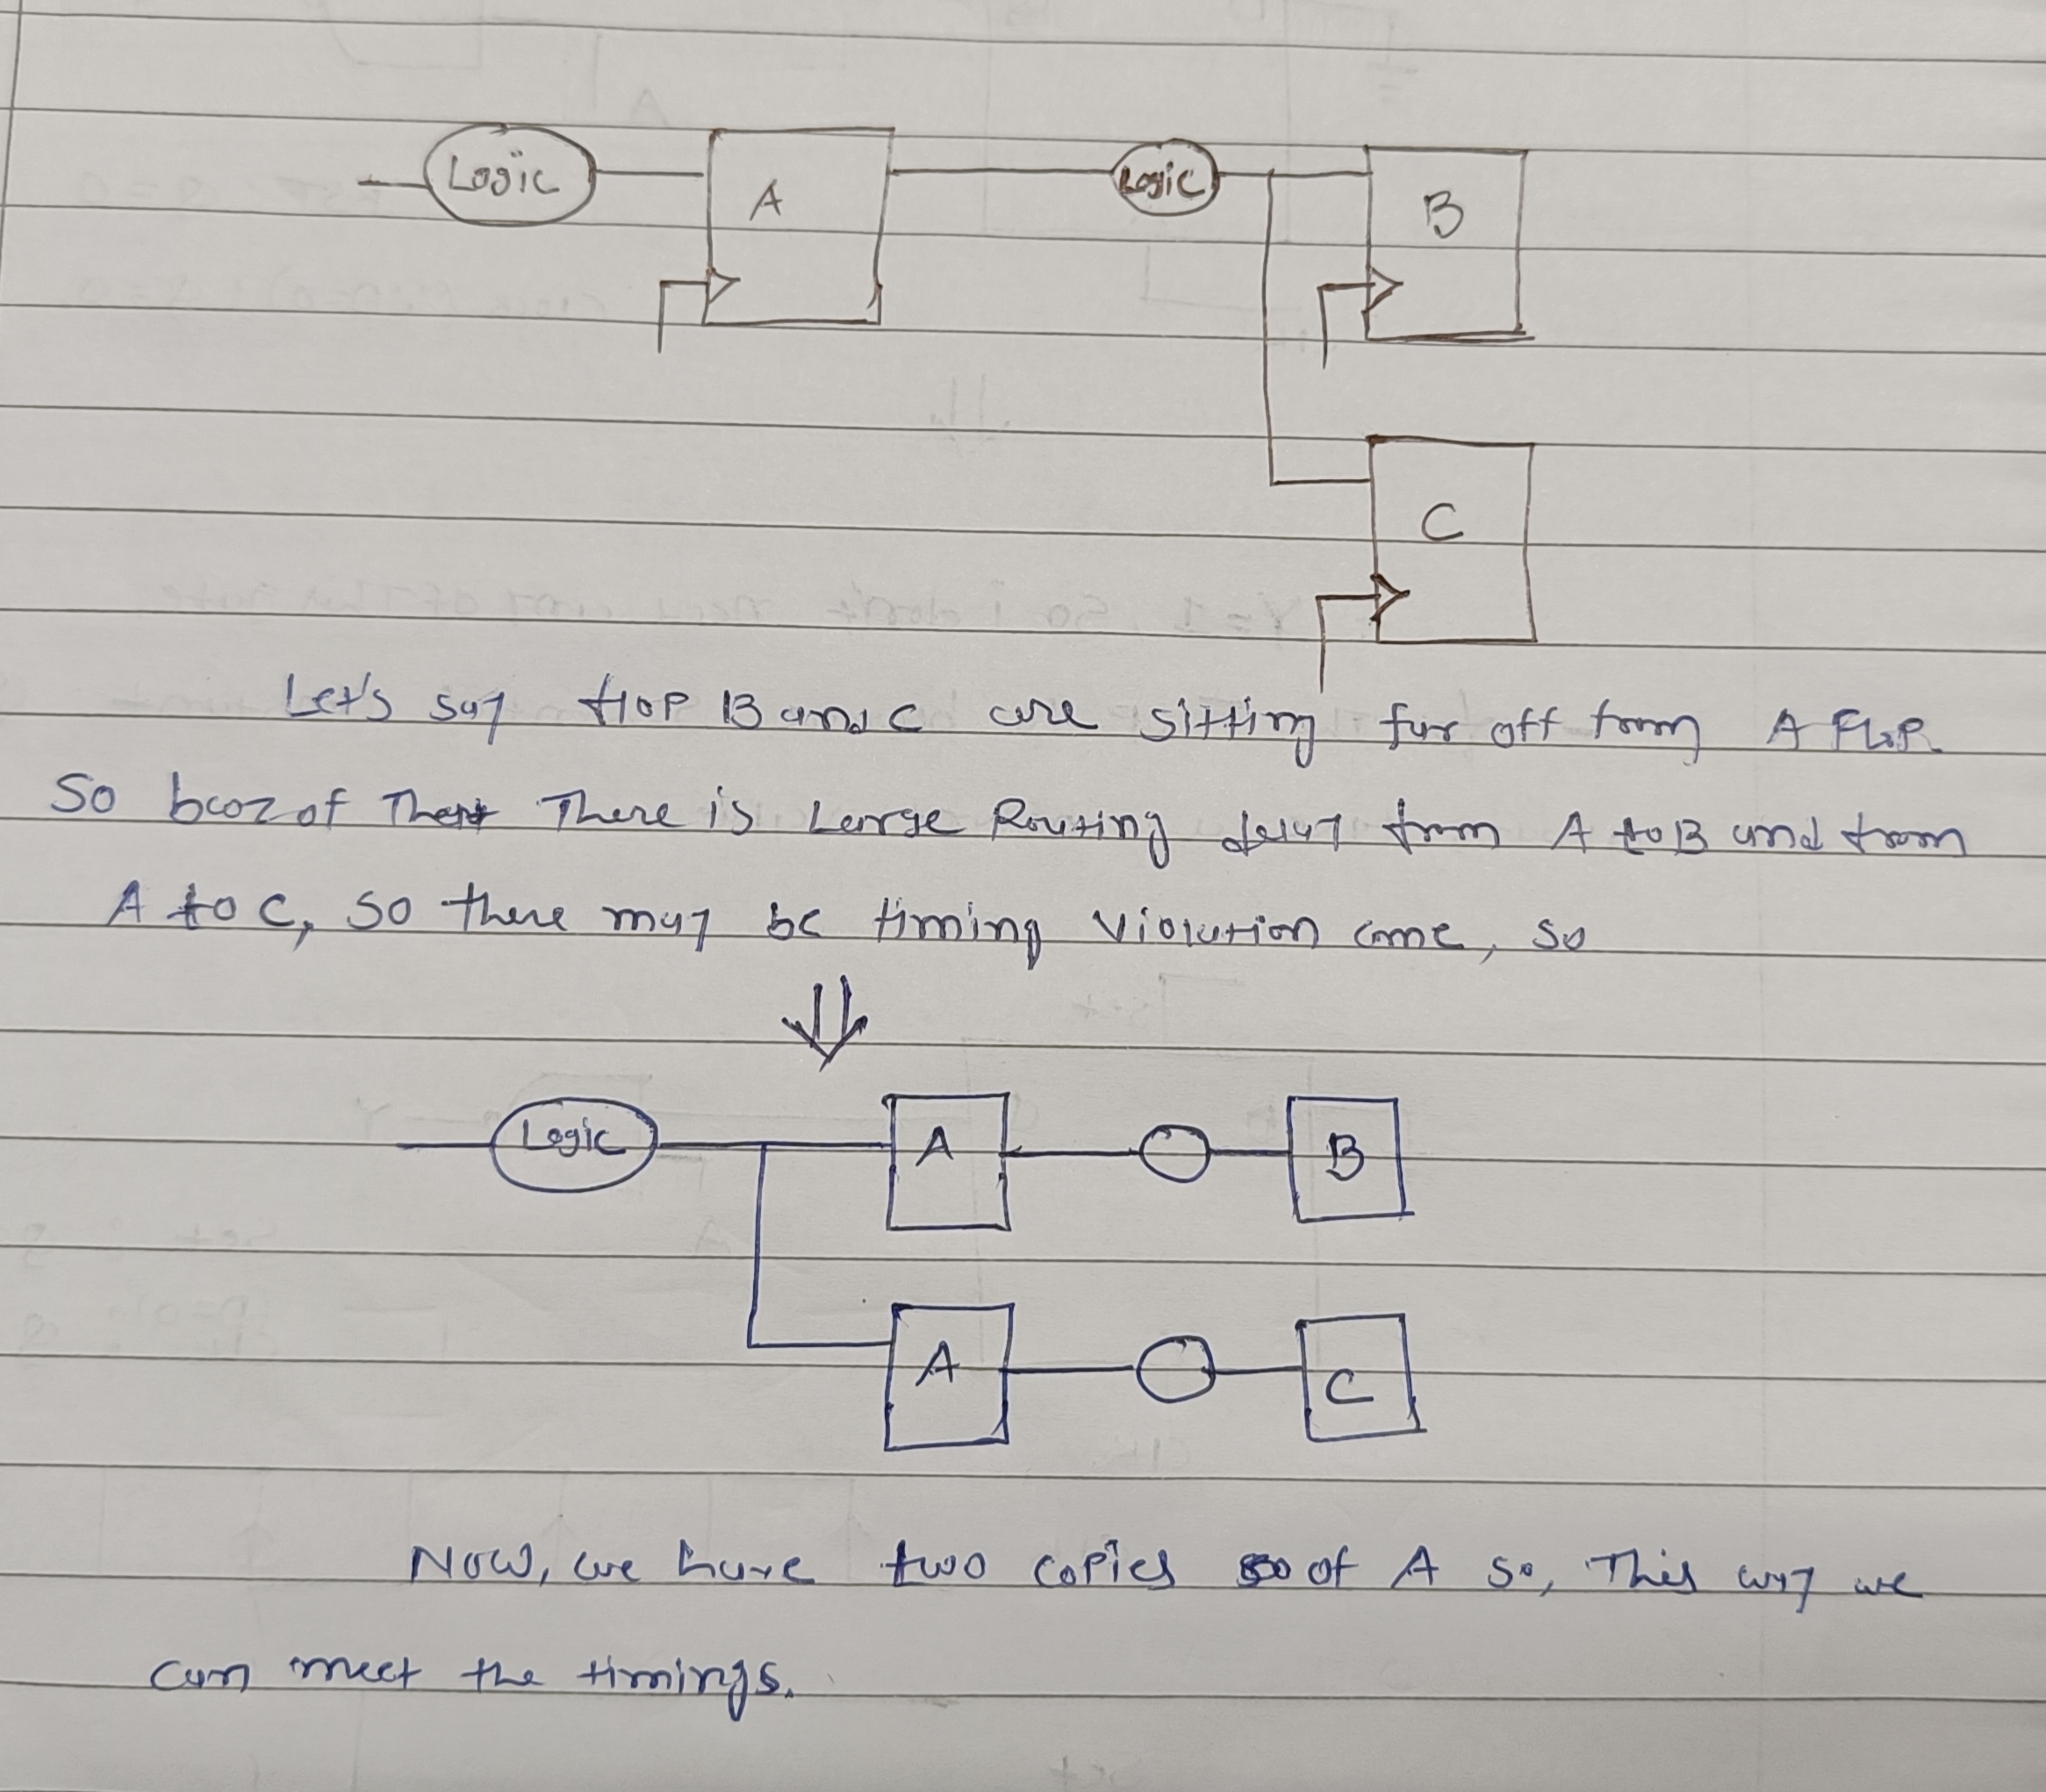 Logic
A
Logic
B
C
Let's say flop B and C are sitting far off from A Flop.
So bcoz of There is Large Routing delay from A to B and from
A to C, so there may be timing violation come, so
Logic
A
B
A
C
Now, we have two copies of A so, This way we
can meet the timings.